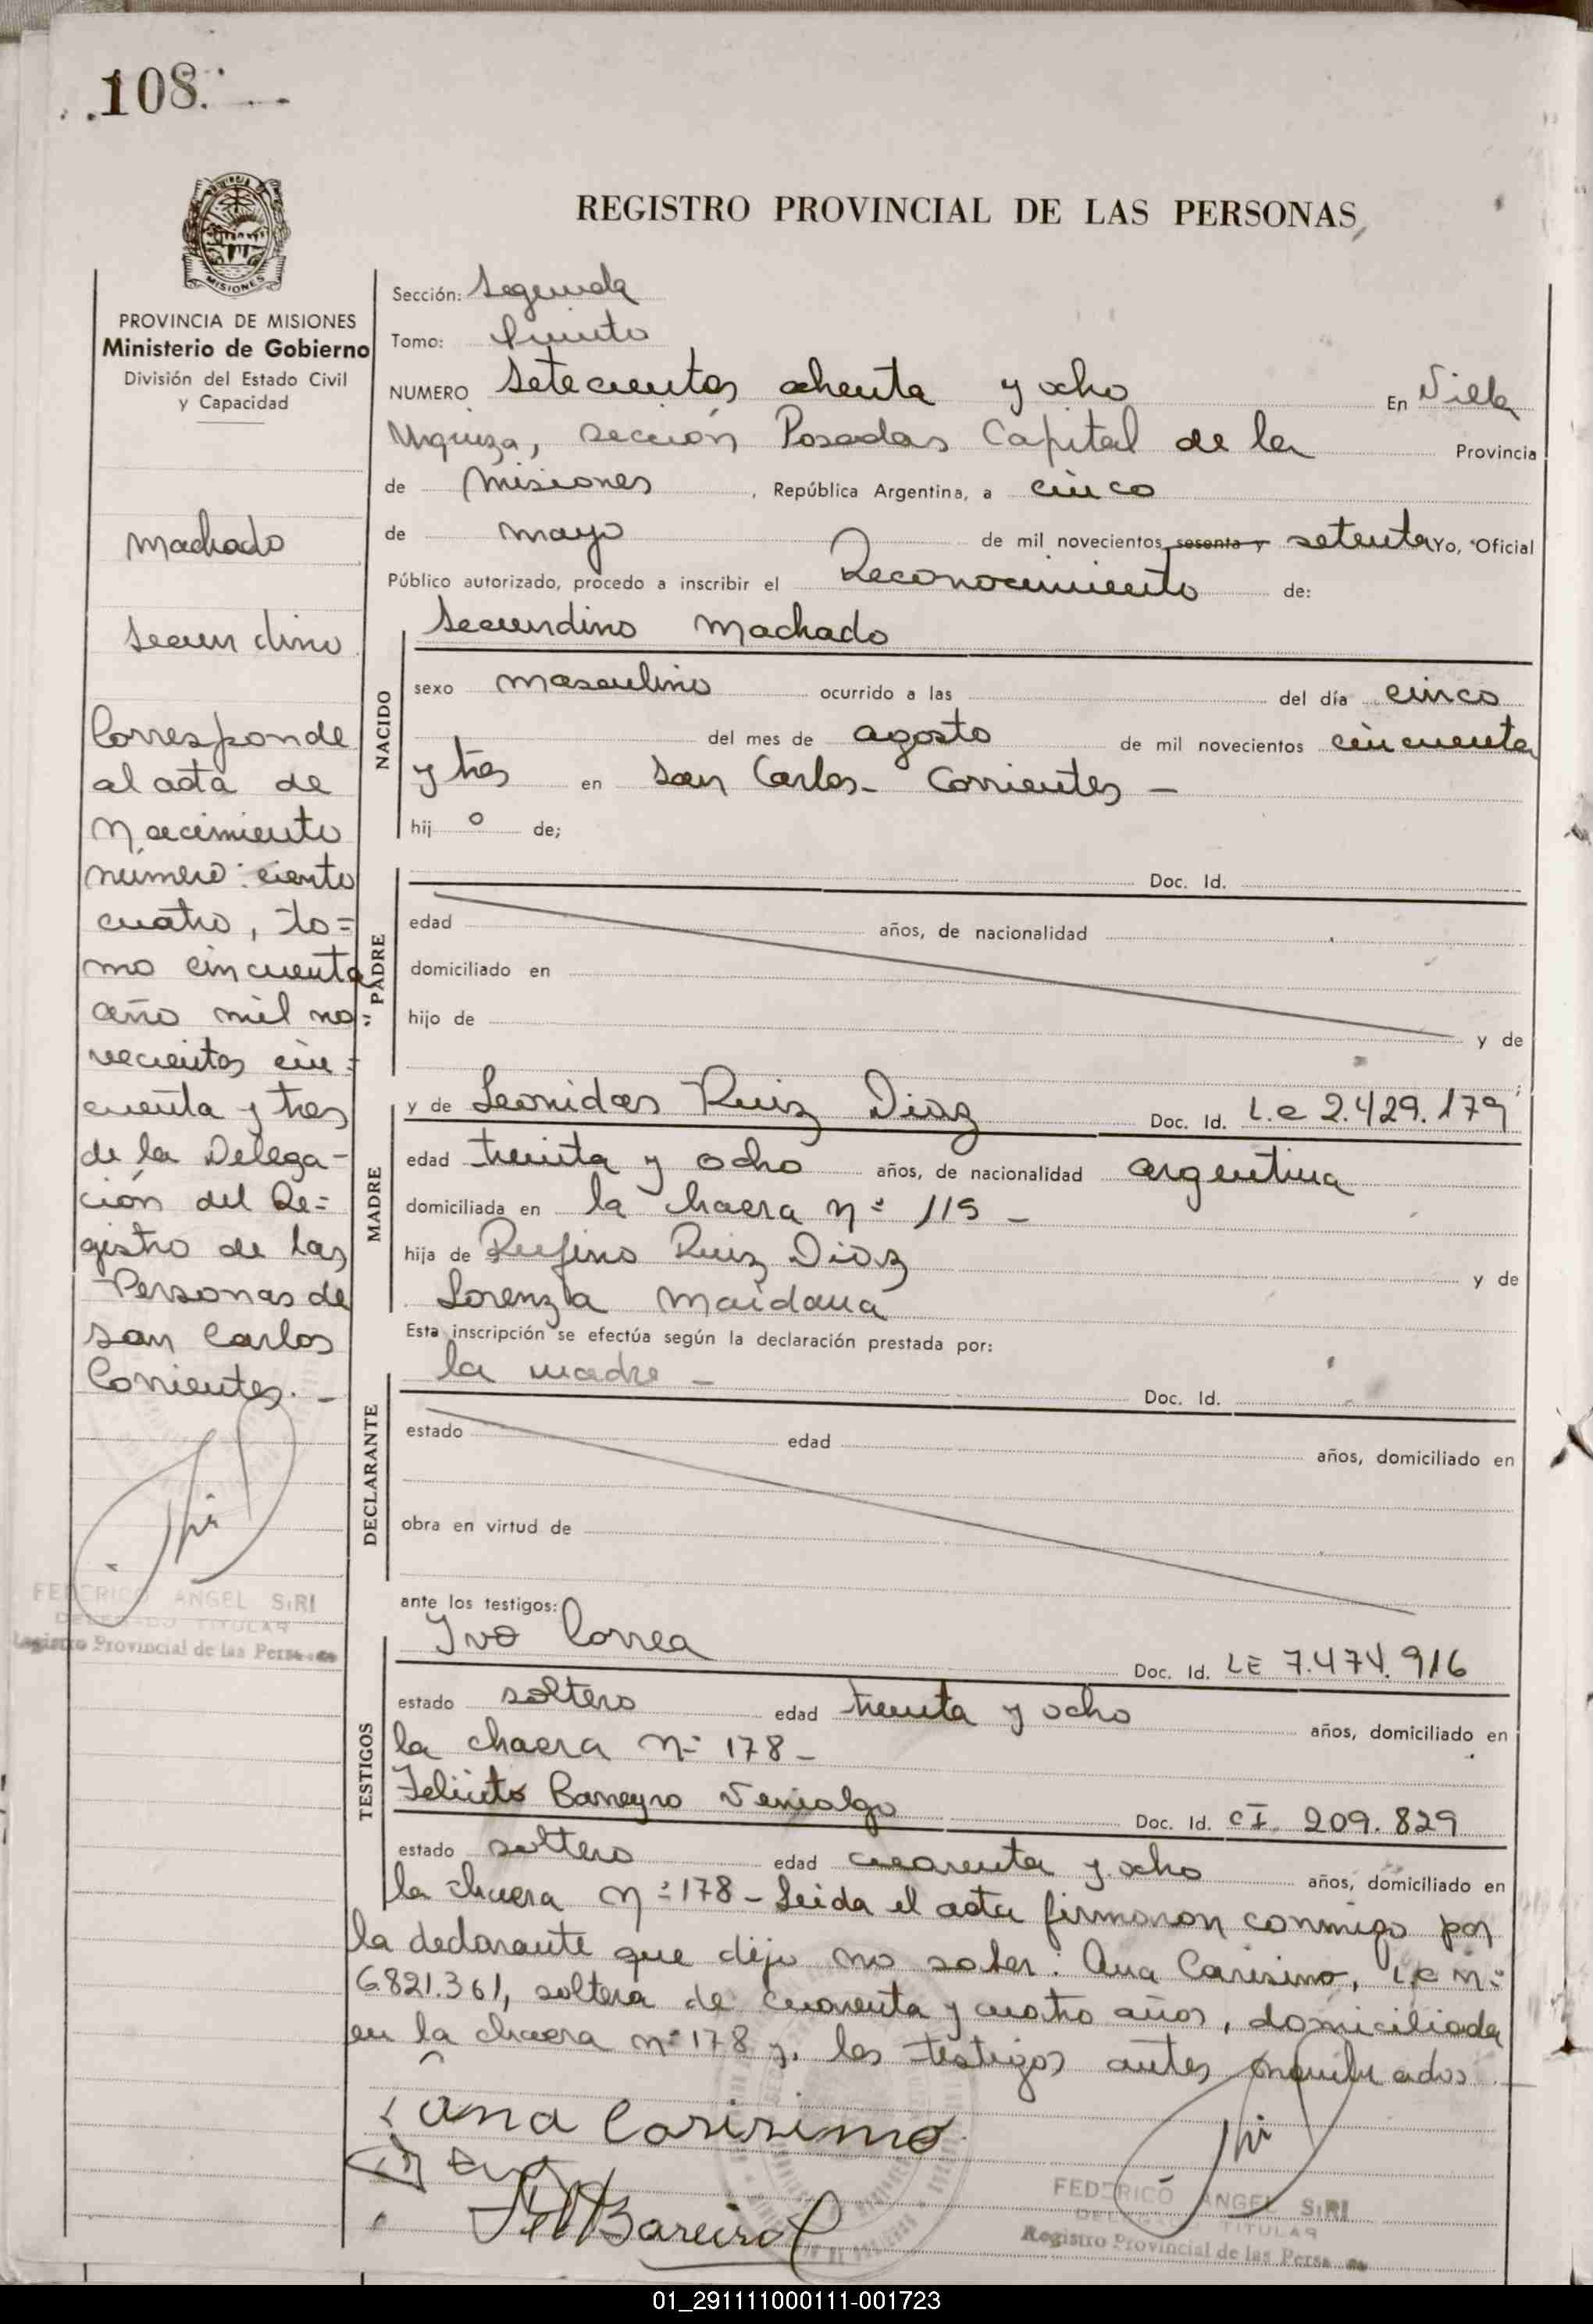 108.
REGISTRO PROVINCIAL DE LAS PERSONAS
MISIONES
PROVINCIA DE MISIONES
Ministerio de Gobierno
División del Estado Civil
y Capacidad
Machado
Secundino
Corresponde
al acta de
Nacimiento
número: ciento
cuatro, to=
mo cincuenta
año mil no
vecientos cin=
cuenta y tres
de la Delega-
ción del Re=
gistro de las
Personas de
San Carlos
Corrientes. -
FEDERICO ANGEL SIRI
DELEGADO TITULAR
Registro Provincial de las Personas
Sección: Segunda
Tomo: Quinto
NUMERO Setecientos ochenta y ocho En Villa
Urquiza, sección Posadas Capital de la Provincia
de Misiones, República Argentina, a cinco
de mayo de mil novecientos sesenta y setenta Yo, Oficial
Público autorizado, procedo a inscribir el Reconocimiento de:
Secundino Machado
NACIDO
sexo masculino ocurrido a las del día cinco
del mes de agosto de mil novecientos cincuenta
y tres en San Carlos - Corrientes -
hij o de;
Doc. Id.
PADRE
edad años, de nacionalidad
domiciliado en
hijo de y de
y de Leonidas Ruiz Diaz Doc. Id. L.C 2.429.179
MADRE
edad treinta y ocho años, de nacionalidad argentina
domiciliada en la chacra Nº 119 -
hija de Rufino Ruiz Diaz y de
Lorenza Maidana
Esta inscripción se efectúa según la declaración prestada por:
la madre - Doc. Id.
DECLARANTE
estado edad años, domiciliado en
obra en virtud de
ante los testigos:
Ivo Correa Doc. Id. LE 7.474.916
TESTIGOS
estado soltero edad treinta y ocho años, domiciliado en
la chacra Nº 178 -
Felicito Barreyro Venialgo Doc. Id. CI. 209.829
estado soltero edad cuarenta y ocho años, domiciliado en
la chacra Nº 178 - Leida el acta firmaron conmigo por
la declarante que dijo no saber: Ana Carisimo, L.C Nº
6.821.361, soltera de cuarenta y cuatro años, domiciliada
en la chacra nº 178 y, los testigos antes nombrados.
Ana Carisimo
FEDERICO ANGEL SIRI
DELEGADO TITULAR
Registro Provincial de las Personas
01_291111000111-001723